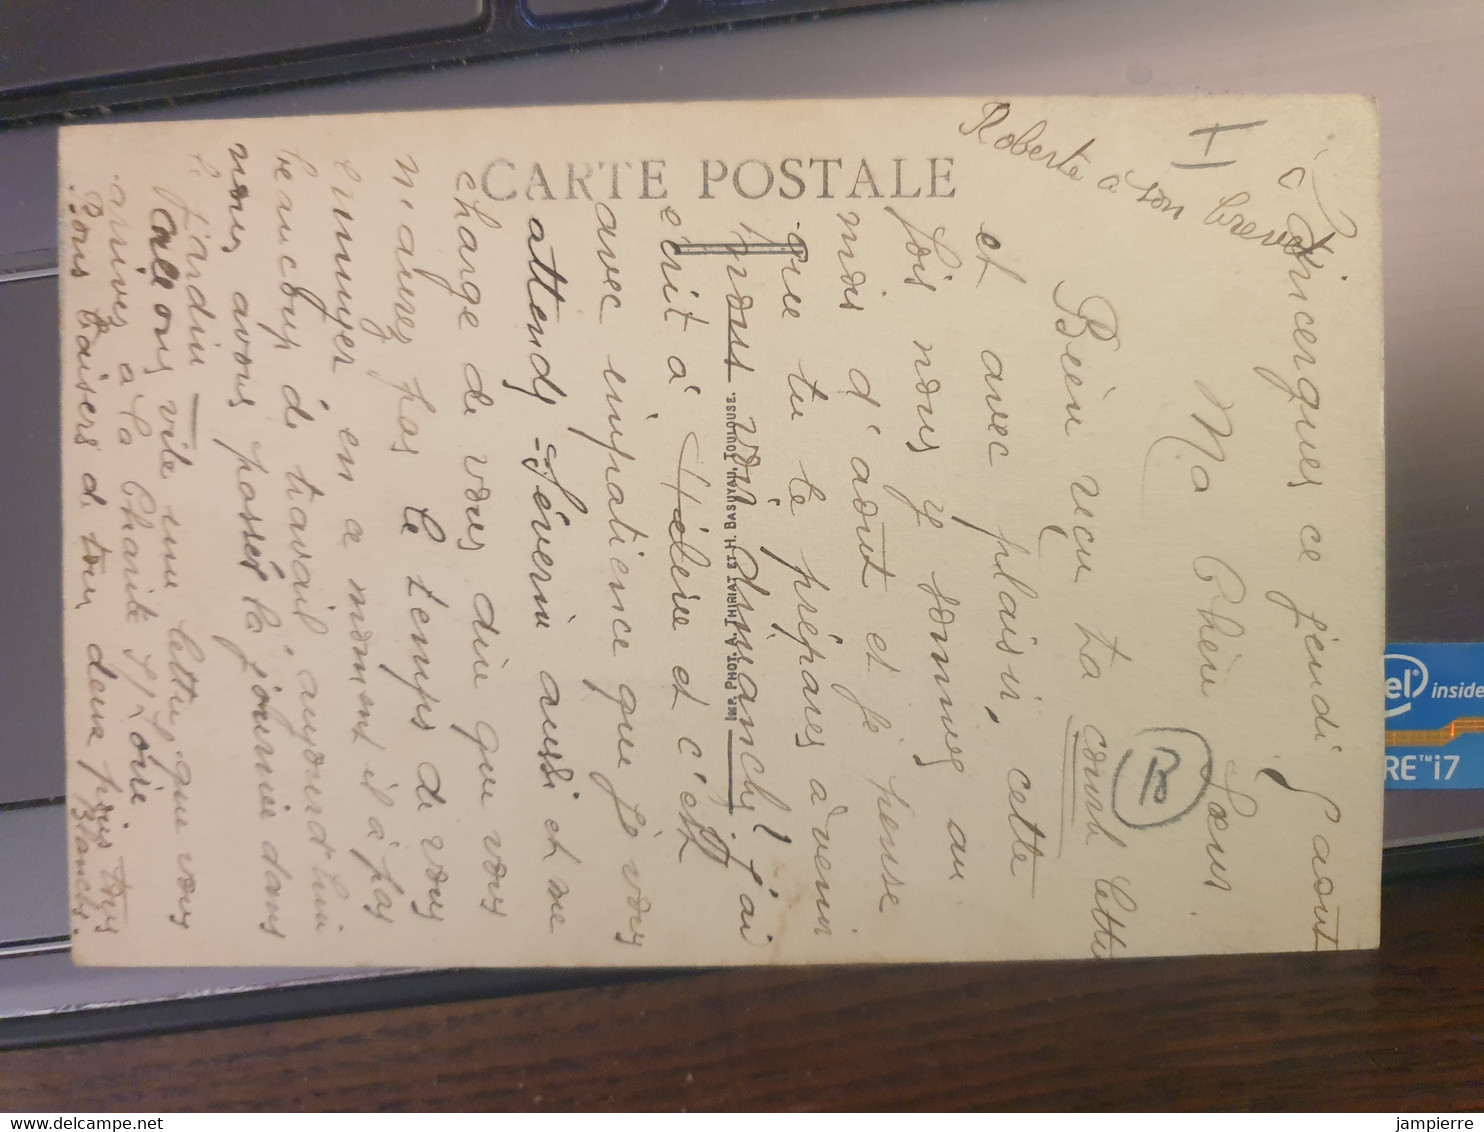 Roberte à son brevet
Sancergues ce jeudi 5 aout
Ma Chère Sœur
Bien reçu ta court lettre
et avec plaisir, cette
fois nous y sommes au
mois d'août et je pense
que tu te prépares à venir
nous voir dimanche j'ai
écrit à Hélène et c'est
avec impatience que je vous
attends Séverin aussi et me
charge de vous dire que vous
n'aurez pas le temps de vous
ennuyer en a moment il à pas
beaucoup de travail, aujourd'hui
nous avons passer la journée dans
l'jardin
Allons vite une lettre que vous
arrivez à La Charité s/Loire
Bons baisers de tou deux pour tous
Blanche.
B
CARTE POSTALE
IMP. PHOT. A. THIRIAT ET H. BASUYAU, TOULOUSE.
intel inside
CORE™ i7
delcampe.net
jampierre